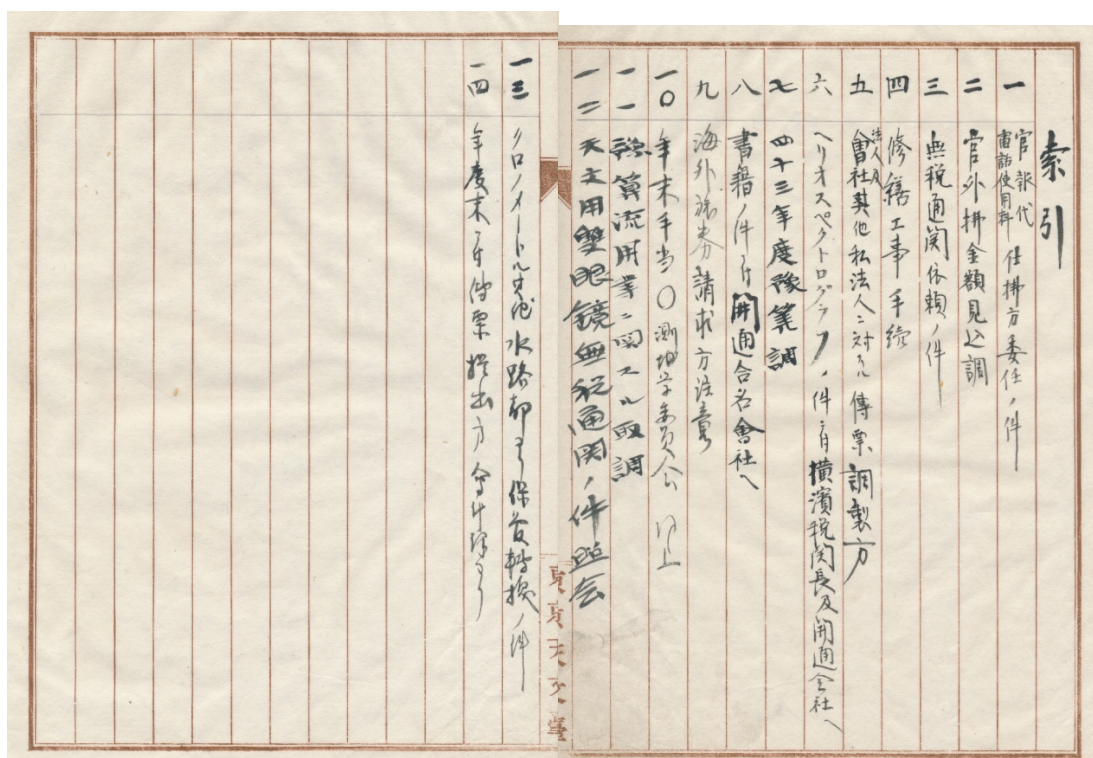 索引
一 官報代 電話使用料 仕拂方委任ノ件
二 官外拂金額見込調
三 無税通関依頼ノ件
四 修繕工事手続
五 法人及會社其他私法人ニ対スル傳票調製方
六 ヘリオスペクトログラフノ件ニ付横濱税関長及開通会社ヘ
七 四十三年度豫算調
八 書籍ノ件ニ付開通合名會社ヘ
九 海外旅券請求方注意
一〇 年末手当〇測地学委員会 同上
一一 豫算流用等ニ関スル取調
一二 天文用雙眼鏡無税通関ノ件照会
一三 クロノメートル 水路部ヨリ保管轉換ノ件
一四 年度末ニ付傳票提出方会計課ヨリ
東京天文臺